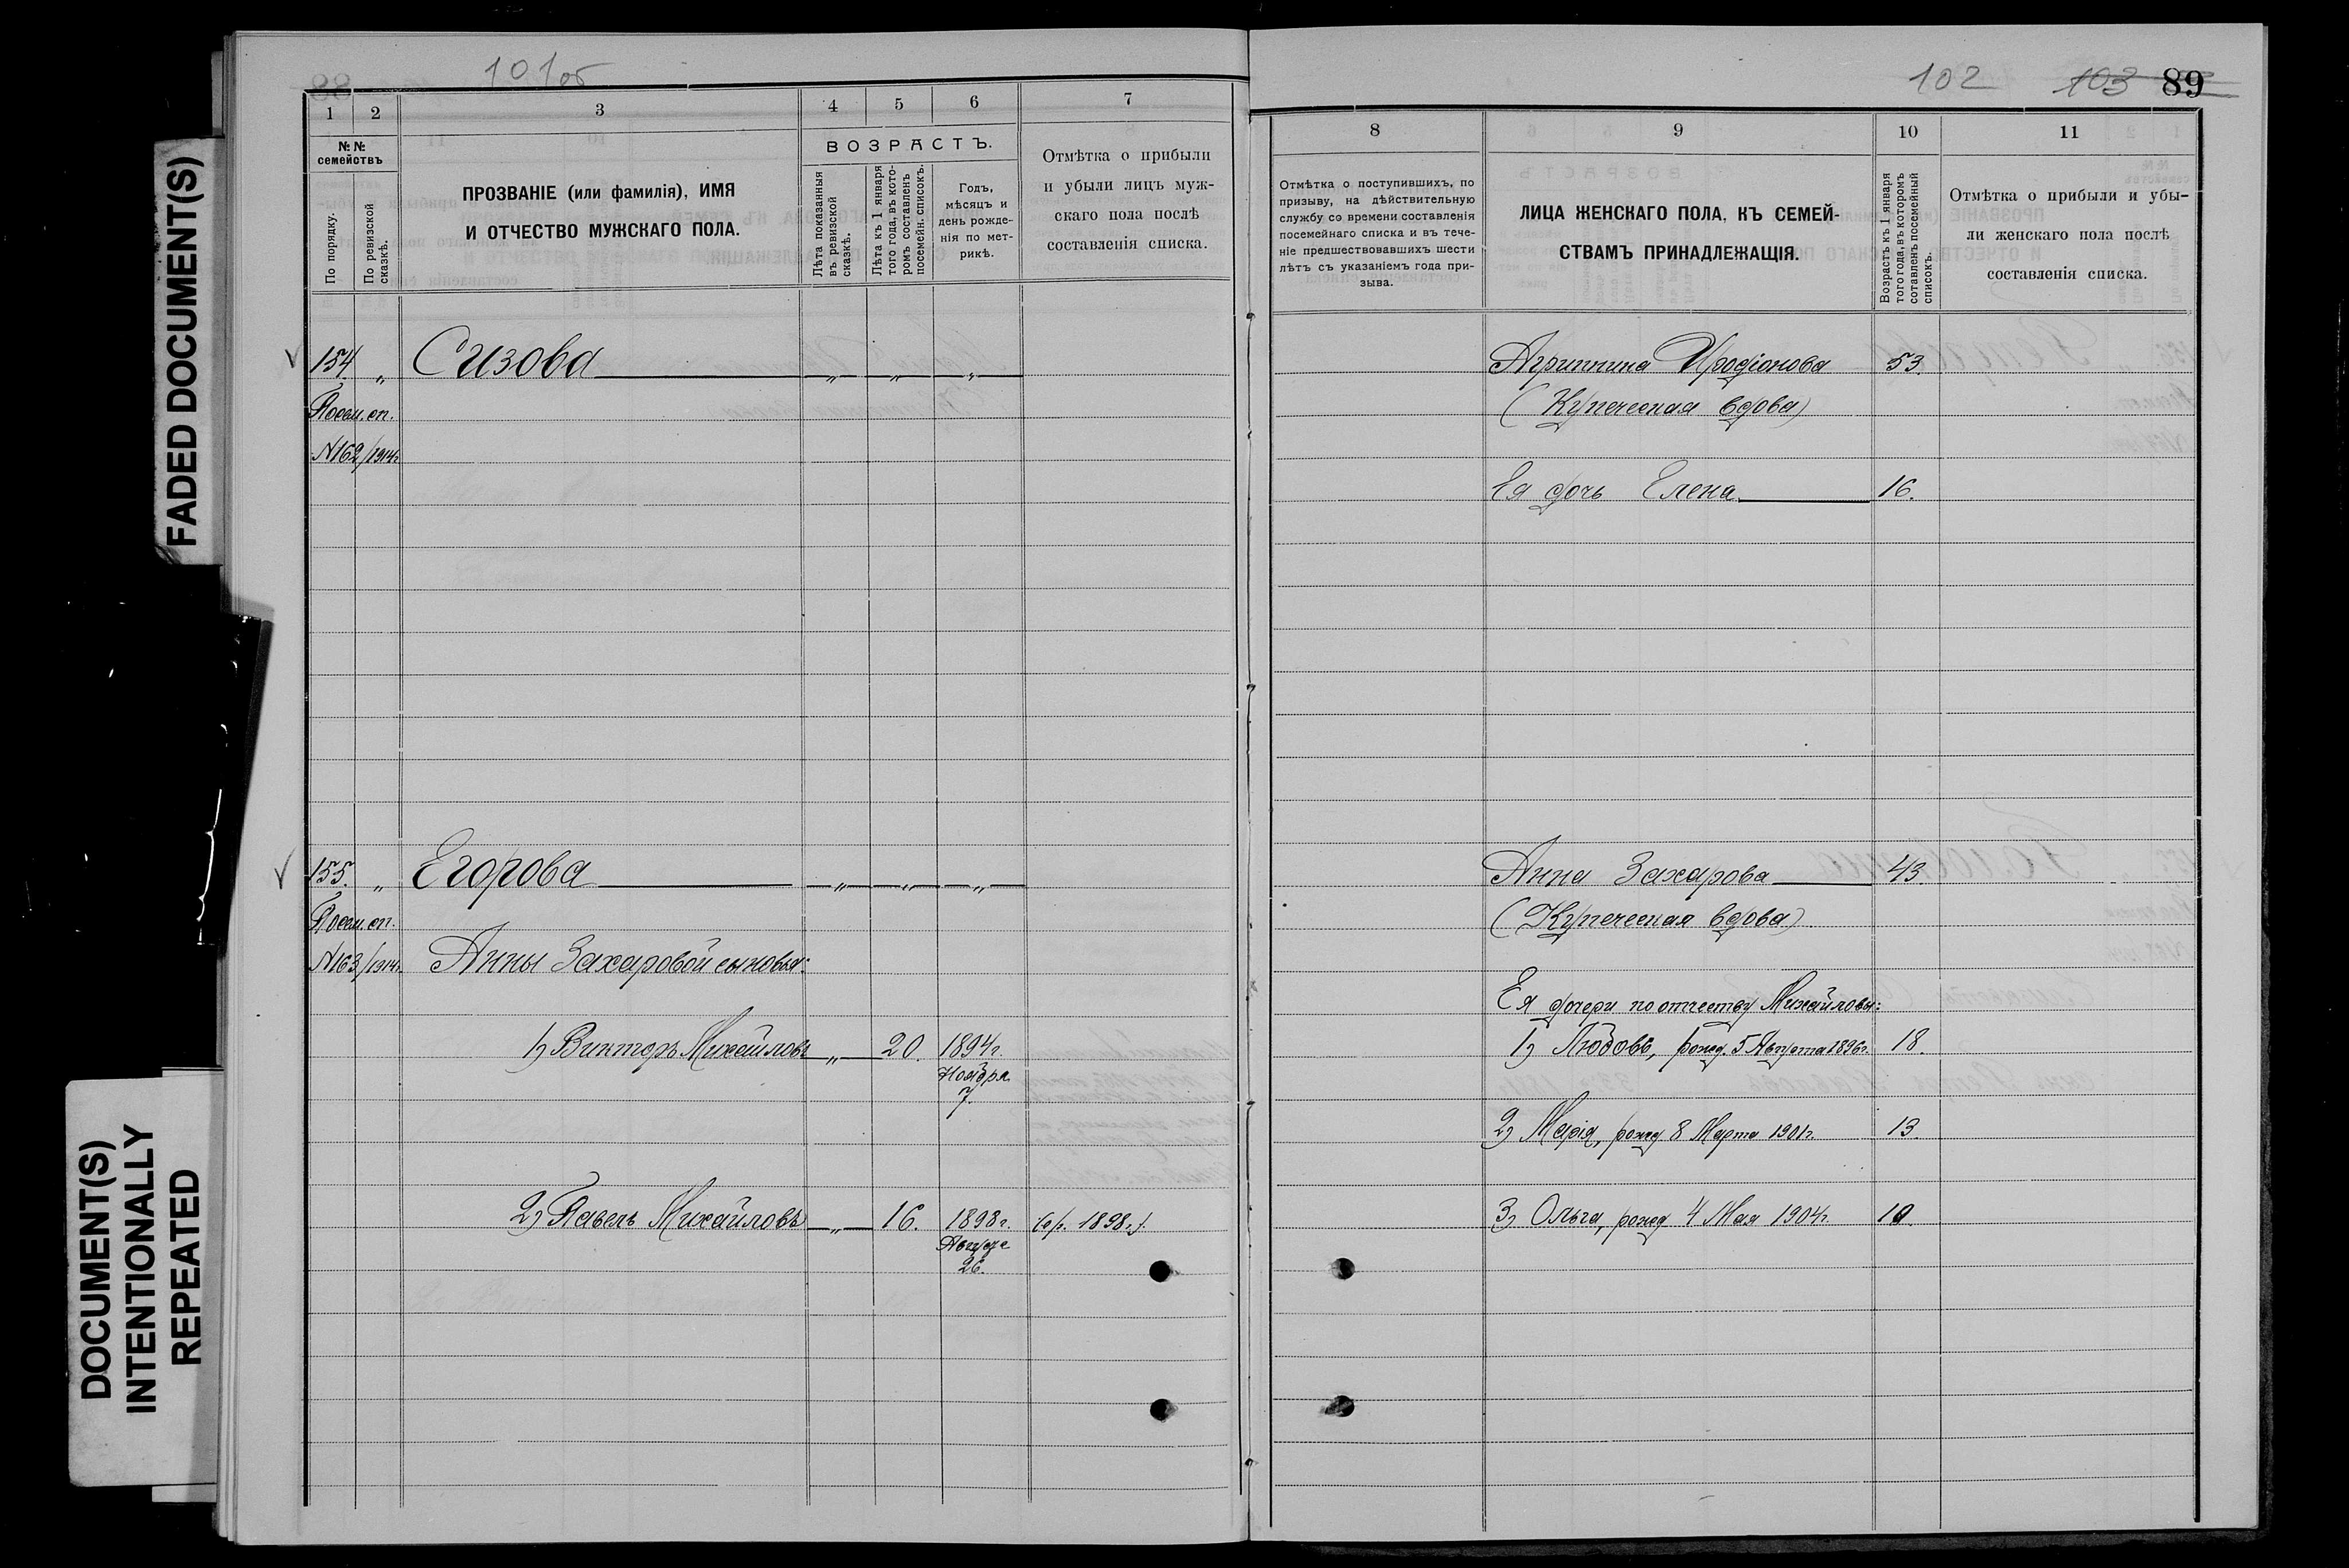 FADED DOCUMENT(S)
DOCUMENT(S)
INTENTIONALLY
REPEATED
101об
1
2
3
4
5
6
7
№№
семействъ
По порядку.
По ревизской
сказкѣ.
ПРОЗВАНІЕ (или фамилія), ИМЯ
И ОТЧЕСТВО МУЖСКАГО ПОЛА.
ВОЗРАСТЪ.
Лѣта показанныя
въ ревизской
сказкѣ.
Лѣта къ 1 января
того года, въ кото-
ромъ составленъ
посемейн. списокъ.
Годъ,
мѣсяцъ и
день рожде-
нія по мет-
рикѣ.
Отмѣтка о прибыли
и убыли лицъ муж-
скаго пола послѣ
составленія списка.
154 „ Сизова „ „ „
Посем. сп.
№162/1914г
155. „ Егорова „ „ „
Посем. сп.
№163/1914г. Анны Захаровой сыновья:
1) Викторъ Михайловъ „ 20. 1894г.
Ноября
7.
2) Павелъ Михайловъ „ 16. 1898г. (ср. 1898г.)
26.
102 103 89
8
9
10
11
Отмѣтка о поступившихъ, по
призыву, на дѣйствительную
службу со времени составленія
посемейнаго списка и въ тече-
ніе предшествовавшихъ шести
лѣтъ съ указаніемъ года при-
зыва.
ЛИЦА ЖЕНСКАГО ПОЛА, КЪ СЕМЕЙ-
СТВАМЪ ПРИНАДЛЕЖАЩІЯ.
Возрастъ къ 1 января
того года, въ которомъ
сотавленъ посемейный
списокъ.
Отмѣтка о прибыли и убы-
ли женскаго пола послѣ
составленія списка.
Агрипина Иродіонова 53.
(Купеческая вдова)
Ея дочь Елена 16.
Анна Захарова 43.
(Купеческая вдова)
Ея дочери по отчеству Михайловы:
1) Любовь, рожд. 5 Августа 1896г. 18.
2) Марія, рожд 8 Марта 1901г. 13.
3) Ольга, рожд 4 Мая 1904г. 10.